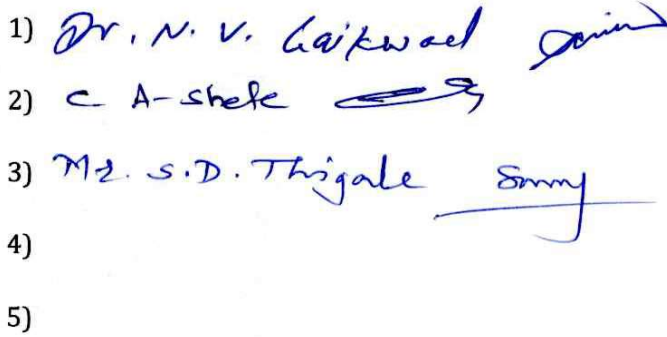 1) Dr. N. V. Gaikwad
2) C A-Shete
3) Mr. S.D. Thigale
4)
5)